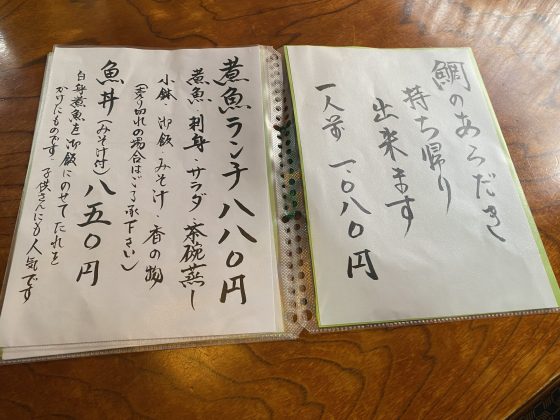 鯛のあらだき
持ち帰り
出来ます
一人前 一、〇八〇円
煮魚ランチ 八八〇円
煮魚・刺身・サラダ・茶碗蒸し
小鉢・御飯・みそ汁・香の物
(売り切れの場合はご了承下さい)
魚丼(みそ汁付)八五〇円
白身煮魚を御飯にのせてたれを
かけたものです。子供さんにも人気です